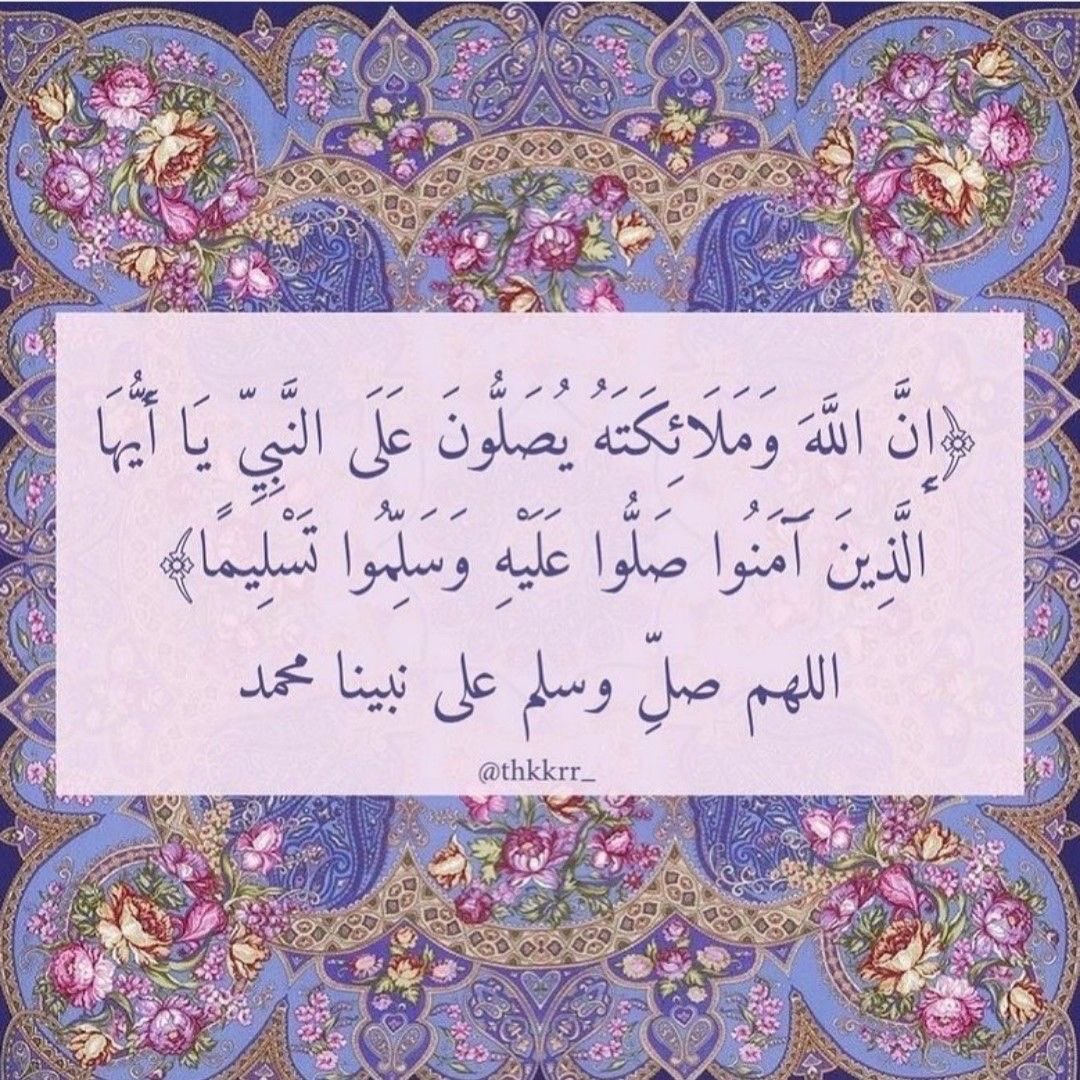 ﴿إِنَّ اللَّهَ وَمَلَائِكَتَهُ يُصَلُّونَ عَلَى النَّبِيِّ يَا أَيُّهَا
الَّذِينَ آمَنُوا صَلُّوا عَلَيْهِ وَسَلِّمُوا تَسْلِيمًا﴾
اللهم صلِّ وسلم على نبينا محمد
@thkkrr_